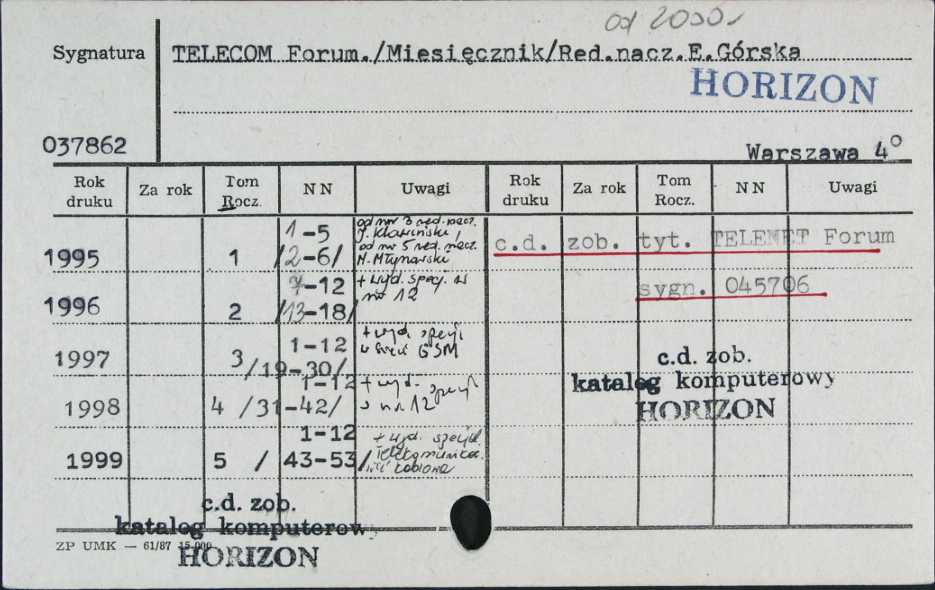 od 2000r
Sygnatura
TELECOM Forum./Miesięcznik/Red.nacz.E.Górska
HORIZON
037862
Warszawa 4°
Rok druku Za rok Tom Rocz. NN Uwagi Rok druku Za rok Tom Rocz. NN Uwagi
1995 1 1-5 /2-6/ od nr 3 red. nacz. od nr 5 red. nacz. M. Młynarski
c.d. zob. tyt. TELENET Forum
sygn. 045706
1996 2 7-12 /13-18/ + wyd. specj. w nr 12
1997 3 1-12 /19-30/ + wyd. specj. GSM
1998 4 1-12 /31-42/ + wyd. specj. nr 12
1999 5 1-12 /43-53/ + wyd. specjal.
c.d. zob.
katalog komputerowy
HORIZON
c.d. zob.
katalog komputerowy
HORIZON
ZP UMK — 61/87 15.000